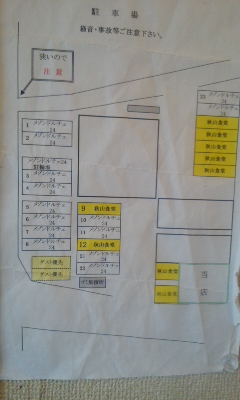 駐車場
雑音・事故等ご注意下さい。
狭いので
注意
1 メゾンドルチェ
24
2 メゾンドルチェ
24
メゾンドルチェ24
駐輪場
3 メゾンドルチェ
24
4 メゾンドルチェ
24
5 メゾンドルチェ
24
6 メゾンドルチェ
24
7 メゾンドルチェ
24
8 メゾンドルチェ
24
9 秋山食堂
10 メゾンドルチェ
24
11 メゾンドルチェ
24
12 秋山食堂
21 メゾンドルチェ
24
22 メゾンドルチェ
24
23 メゾンドルチェ
24
メゾンドルチェ
24
秋山食堂
秋山食堂
秋山食堂
秋山食堂
秋山食堂
秋山食堂
秋山食堂
当
店
ゲスト優先
ゲスト優先